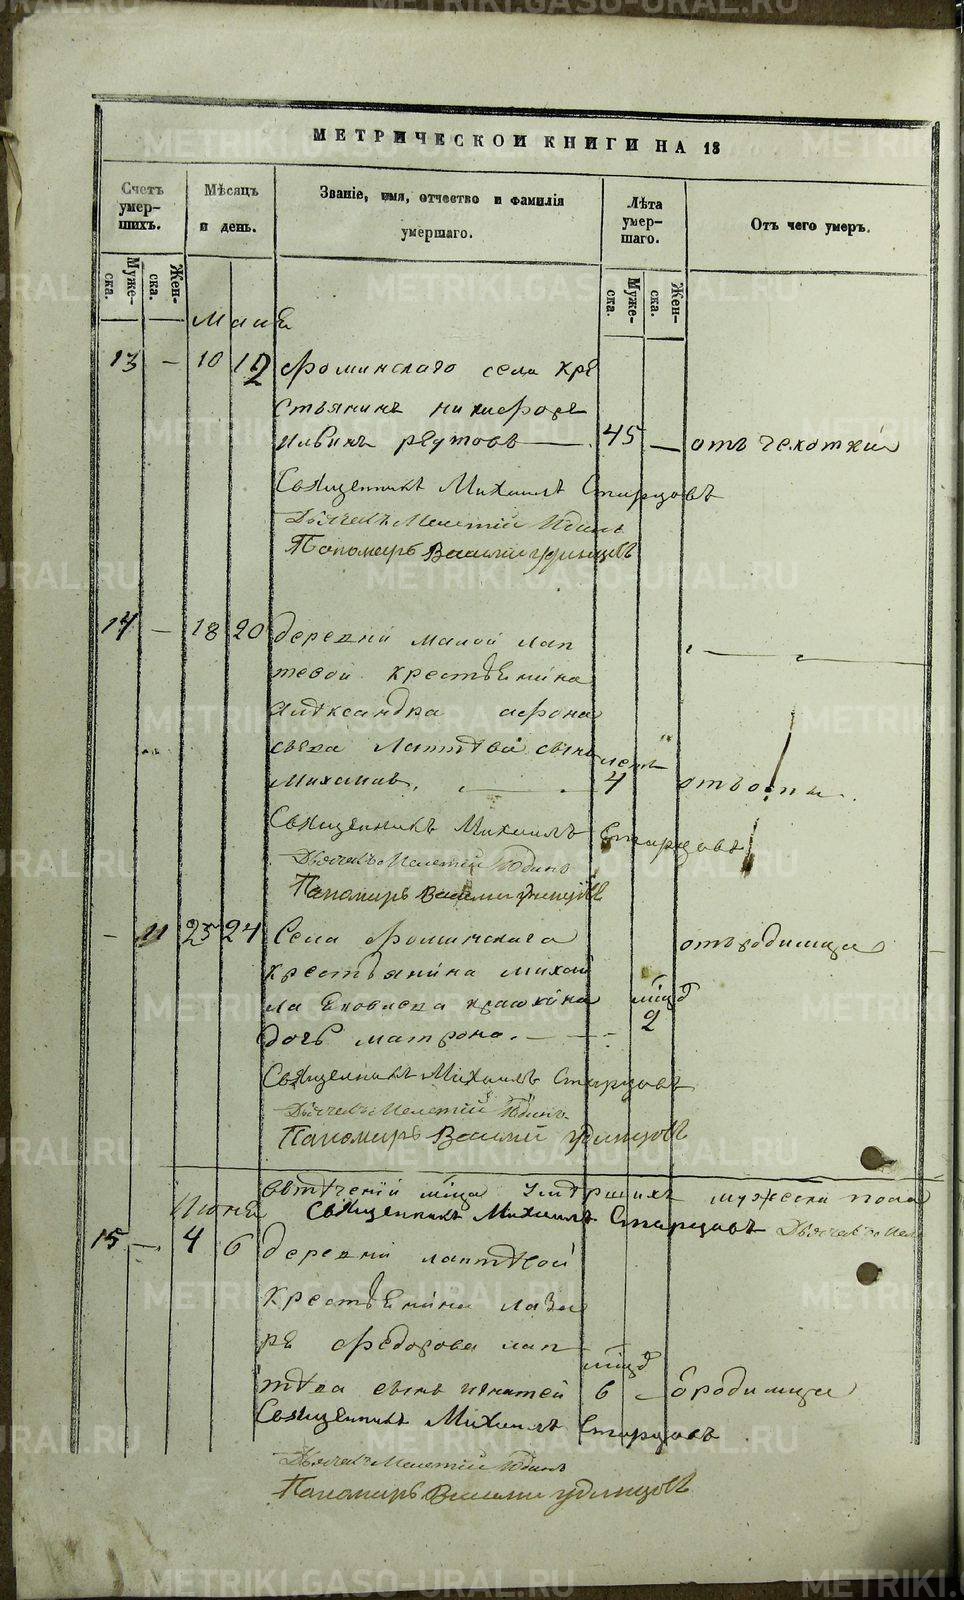 МЕТРИЧЕСКОЙ КНИГИ НА 18
Счетъ умер-шихъ.
Мѣсяцъ и день.
Званіе, имя, отчество и фамилія умершаго.
Лѣта умер-шаго.
Отъ чего умеръ.
Муже-ска.
Жен-ска.
Муже-ска.
Жен-ска.
Маия
13 — 10 12 Фоминскаго села кре
стьянинъ Никифоръ
Ильинъ Реутовъ — 45 — отъ чехоткий
Священникъ Михаилъ Старцовъ
Дьячекъ Мелетій Юдинъ
Пономарь Василий Удинцовъ
14 — 18 20 деревни малой лап
тевой крестьянина
Александра Афона
сьева Лаптева сынъ
Михаилъ. — летъ 4 отъ оспы.
Священникъ Михаилъ Старцовъ
Дьячекъ Мелетій Юдинъ
Пономарь Василий Удинцовъ
— 11 23 24 Села Фоминскаго
крестьянина Михай
ла Яковлева
дочь матрона. — мѣсяц 2 отъ родимца
Священникъ Михаилъ Старцовъ
Дьячекъ Мелетій Юдинъ
Пономарь Василий Удинцовъ
мѣсяца умершихъ мужеска пола
Июня
Священникъ Михаилъ Старцовъ Дьячекъ Меле
15 — 4 6 деревни лаптевой
крестьянина Лаза
ря Федорова лап
тева сынъ мѣсяц 6 — родимца
Священникъ Михаилъ Старцовъ
Дьячекъ Мелетій Юдинъ
Пономарь Василий Удинцовъ
METRIKI.GASO-URAL.RU